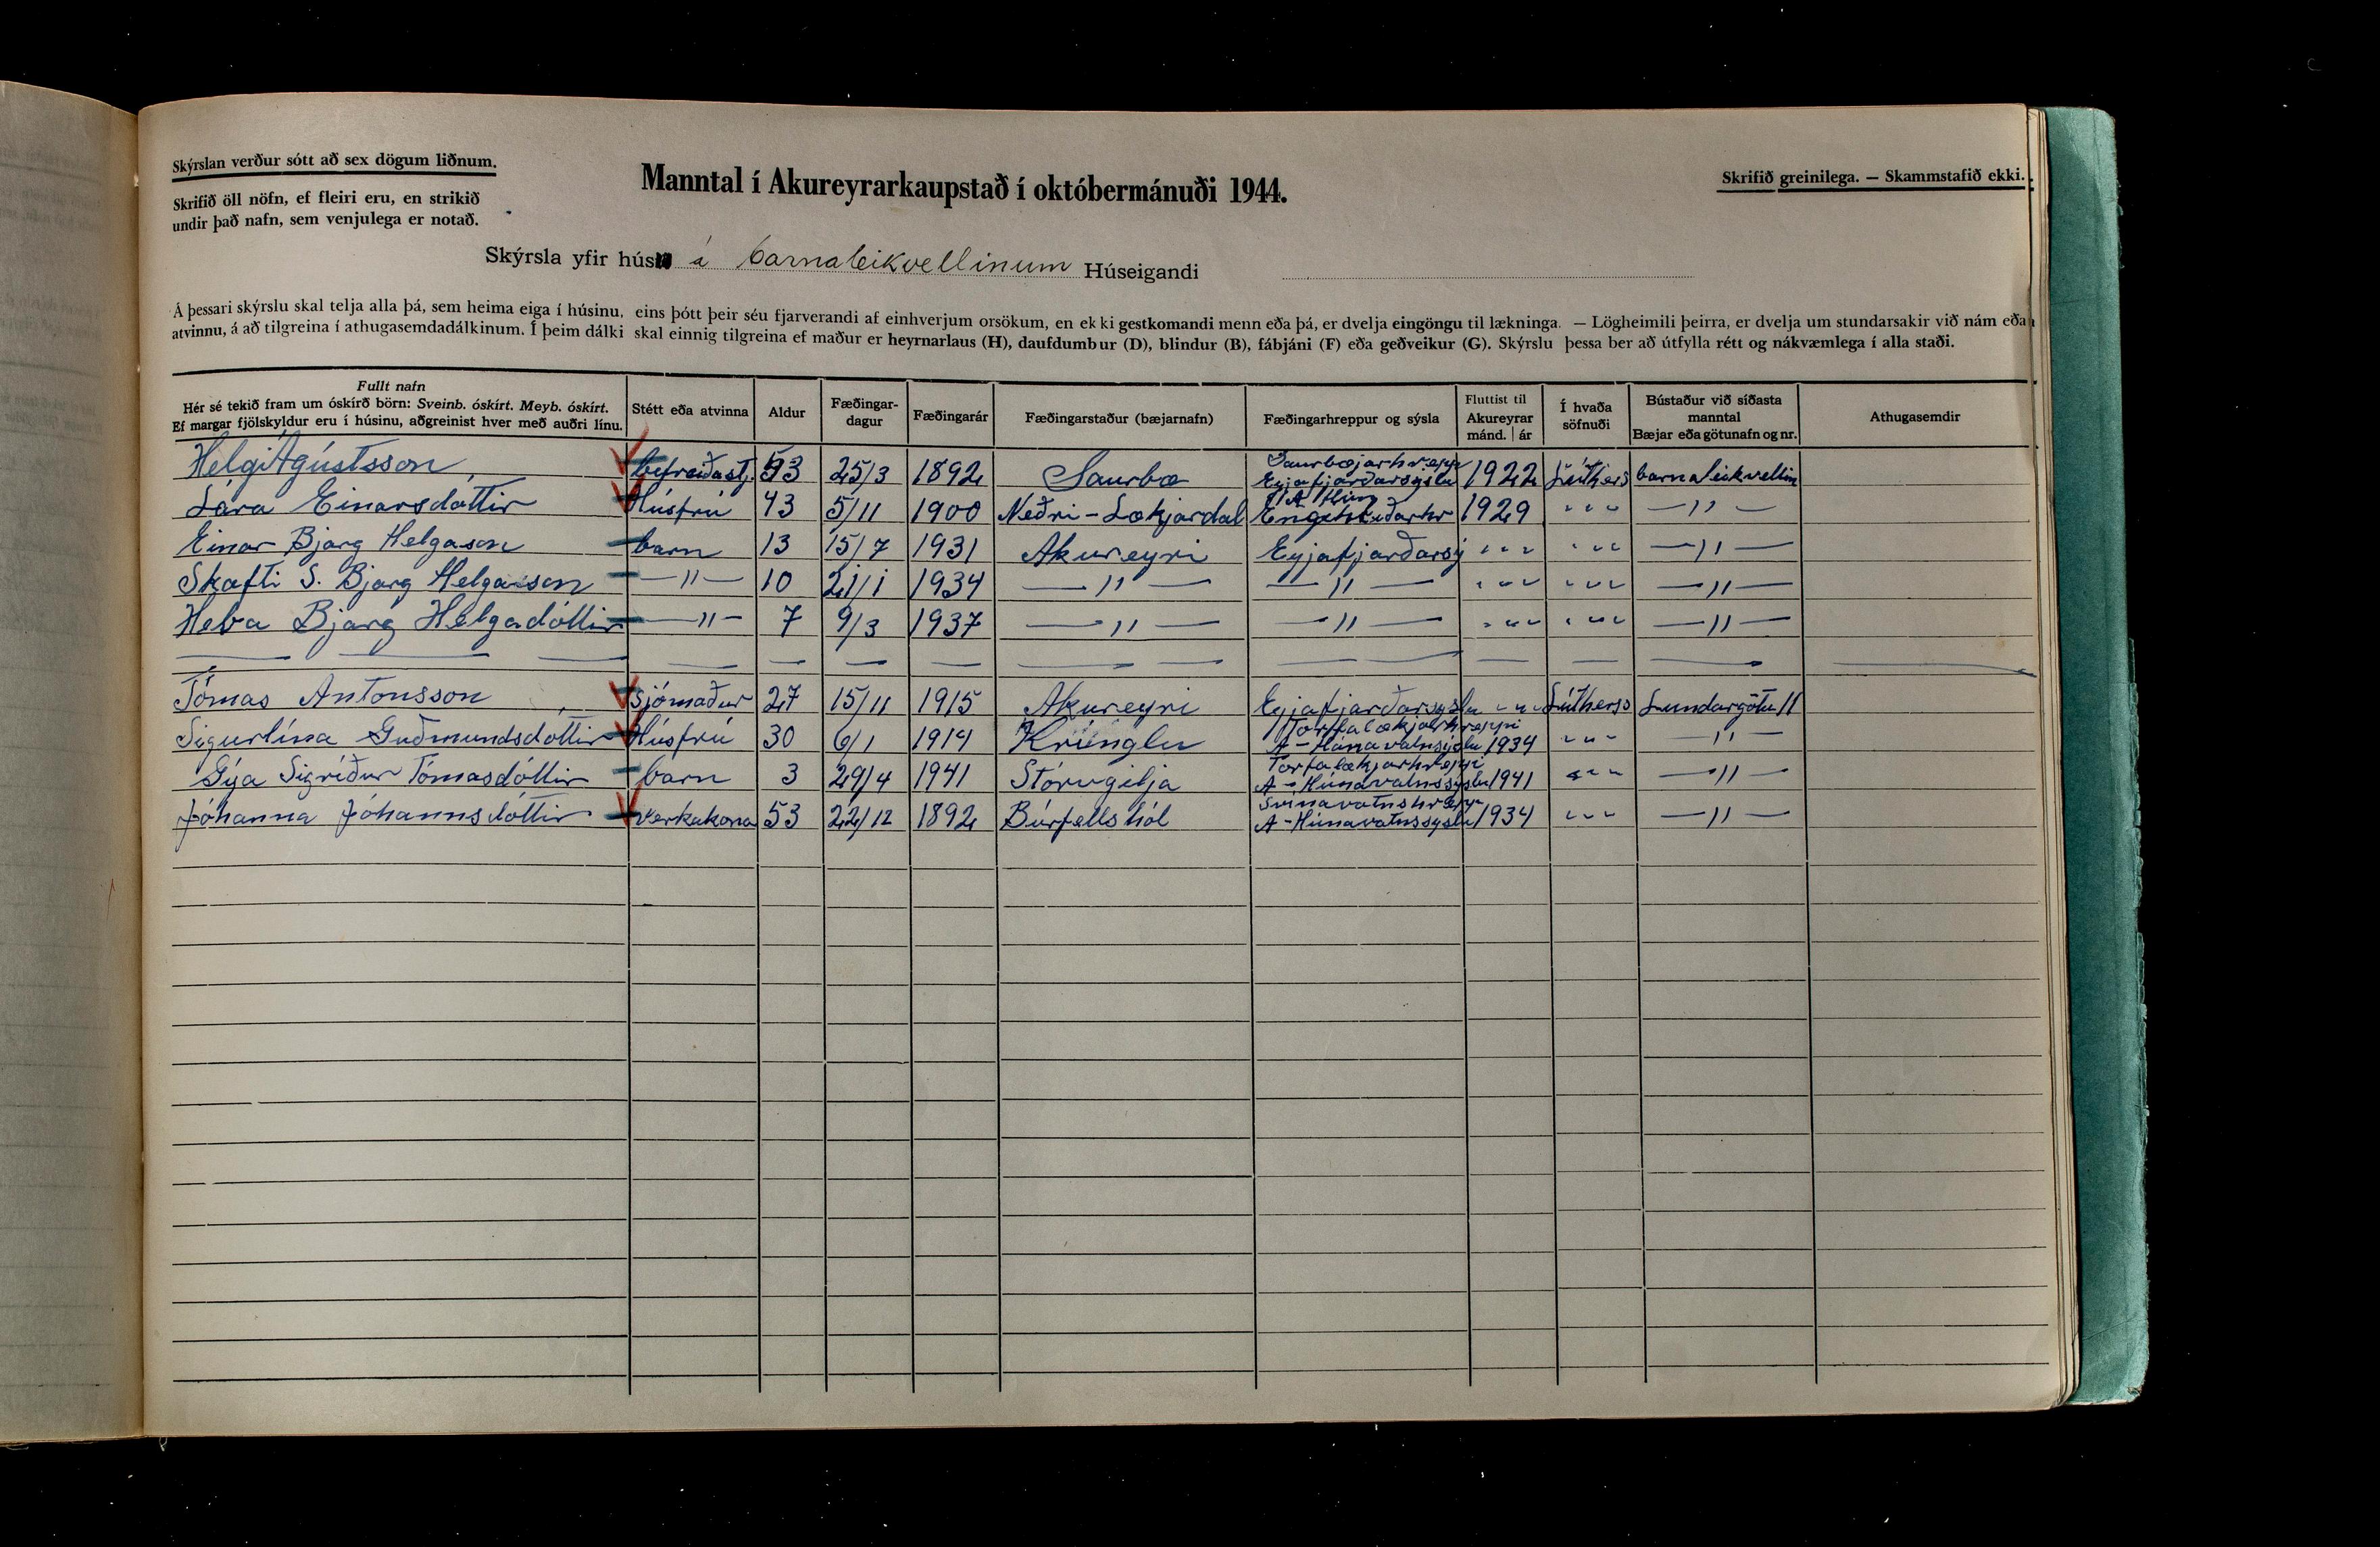 Skýrslan verður sótt að sex dögum liðnum.
Skrifið öll nöfn, ef fleiri eru, en strikið
undir það nafn, sem venjulega er notað.
Manntal í Akureyrarkaupstað í októbermánuði 1944.
Skrifið greinilega. — Skammstafið ekki.
Skýrsla yfir hús á barnaleikvellinum Húseigandi
Á þessari skýrslu skal telja alla þá, sem heima eiga í húsinu, eins þótt þeir séu fjarverandi af einhverjum orsökum, en ekki gestkomandi menn eða þá, er dvelja eingöngu til lækninga. — Lögheimili þeirra, er dvelja um stundarsakir við nám eða
atvinnu, á að tilgreina í athugasemdadálkinum. Í þeim dálki skal einnig tilgreina ef maður er heyrnarlaus (H), daufdumbur (D), blindur (B), fábjáni (F) eða geðveikur (G). Skýrslu þessa ber að útfylla rétt og nákvæmlega í alla staði.
Fullt nafn
Hér sé tekið fram um óskírð börn: Sveinb. óskírt. Meyb. óskírt.
Ef margar fjölskyldur eru í húsinu, aðgreinist hver með auðri línu.
Stétt eða atvinna
Aldur
Fæðingar-
dagur
Fæðingarár
Fæðingarstaður (bæjarnafn)
Fæðingarhreppur og sýsla
Fluttist til
Akureyrar
mánd. | ár
Í hvaða
söfnuði
Bústaður við síðasta
manntal
Bæjar eða götunafn og nr.
Athugasemdir
Helgi Ágústsson bifreiðastj. 53 25/3 1892 Saurbæ Saurbæjarhrepp Eyjafjarðarsýslu 1922 Lúthers barnaleikvellin
Lára Einarsdóttir Húsfrú 43 5/11 1900 Neðri-Lækjardal A Hún Engihlíðarhr 1929 " " " — " —
Einar Bjarg Helgason barn 13 15/7 1931 Akureyri Eyjafjarðarsý " " " " " " — " —
Skafti S. Bjarg Helgason — " — 10 21/1 1934 — " — — " — " " " " " " — " —
Heba Bjarg Helgadóttir — " — 7 9/3 1937 — " — — " — " " " " " " — " —
— — — — — — — — — — — —
Tómas Antonsson Sjómaður 27 15/11 1915 Akureyri Eyjafjarðarsýslu " " " Lúthers Lundargötu 11
Sigurlína Guðmundsdóttir Húsfrú 30 6/1 1914 Kringlu Torfalækjarhreppi A-Húnavatnsýslu 1934 " " " — " —
Gýa Sigríður Tómasdóttir barn 3 29/4 1941 Stórugilja Torfalækjarhreppi A-Húnavatnssýslu 1941 " " " — " —
Jóhanna Jóhannsdóttir Verkakona 53 22/12 1892 Búrfellshól Svínavatnshrepp A-Húnavatnssýslu 1934 " " " — " —